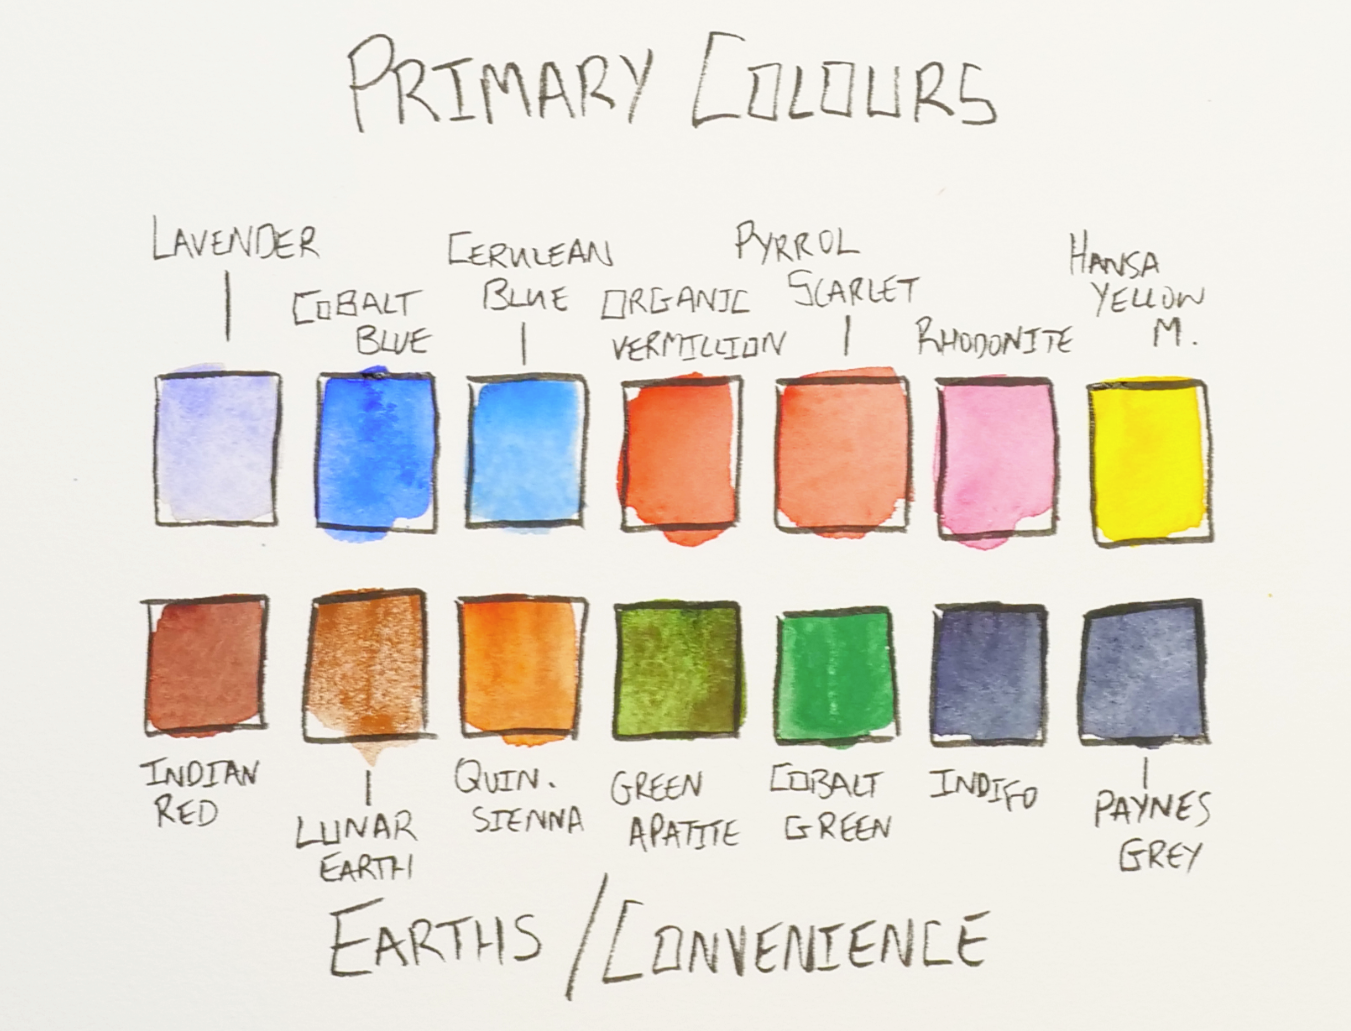 PRIMARY COLOURS
LAVENDER
COBALT
BLUE
CERULEAN
BLUE
ORGANIC
VERMILLION
PYRROL
SCARLET
RHODONITE
HANSA
YELLOW
M.
INDIAN
RED
LUNAR
EARTH
QUIN.
SIENNA
GREEN
APATITE
COBALT
GREEN
INDIGO
PAYNES
GREY
EARTHS/CONVENIENCE